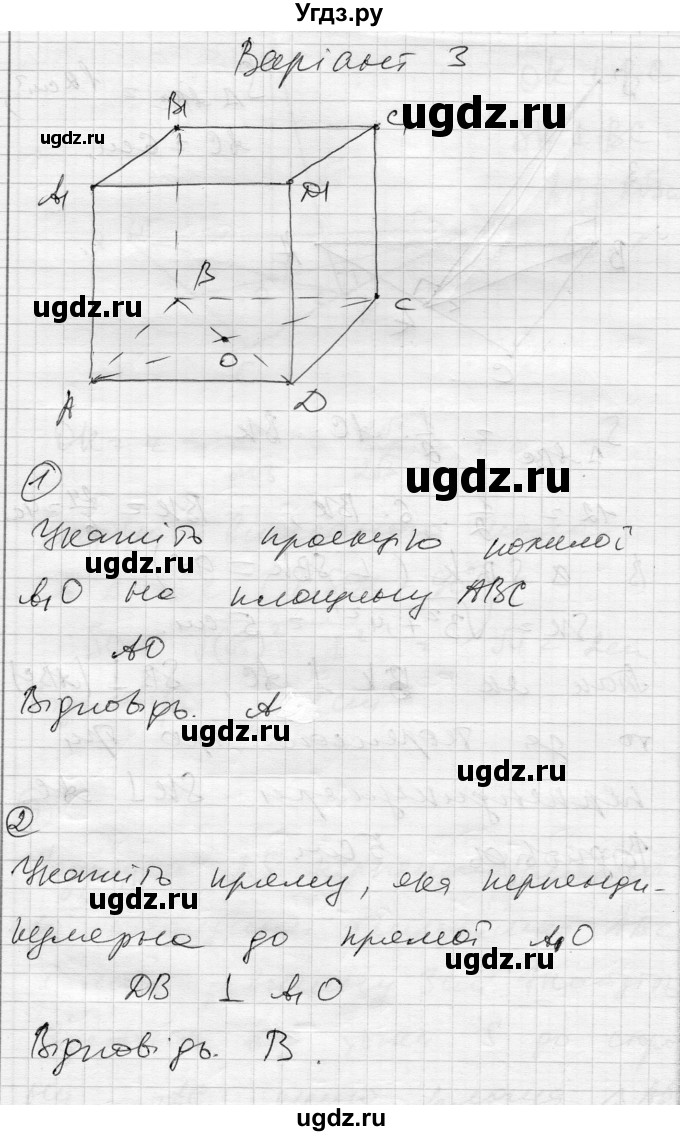 Угдз.ру
Варіант 3
B1
C1
ugdz.ru
ugdz.ru
A1
D1
B
ugdz.ru
C
O
A
D
1
ugdz.ru
Укажіть проекцію похилої
ugdz.ru
A1O на площину ABC
AO
Відповідь. A
ugdz.ru
ugdz.ru
2
Укажіть пряму, яка перпенди-
ugdz.ru
кулярна до прямої A1O
ugdz.ru
DB ⊥ A1O
Відповідь. B.
ugdz.ru